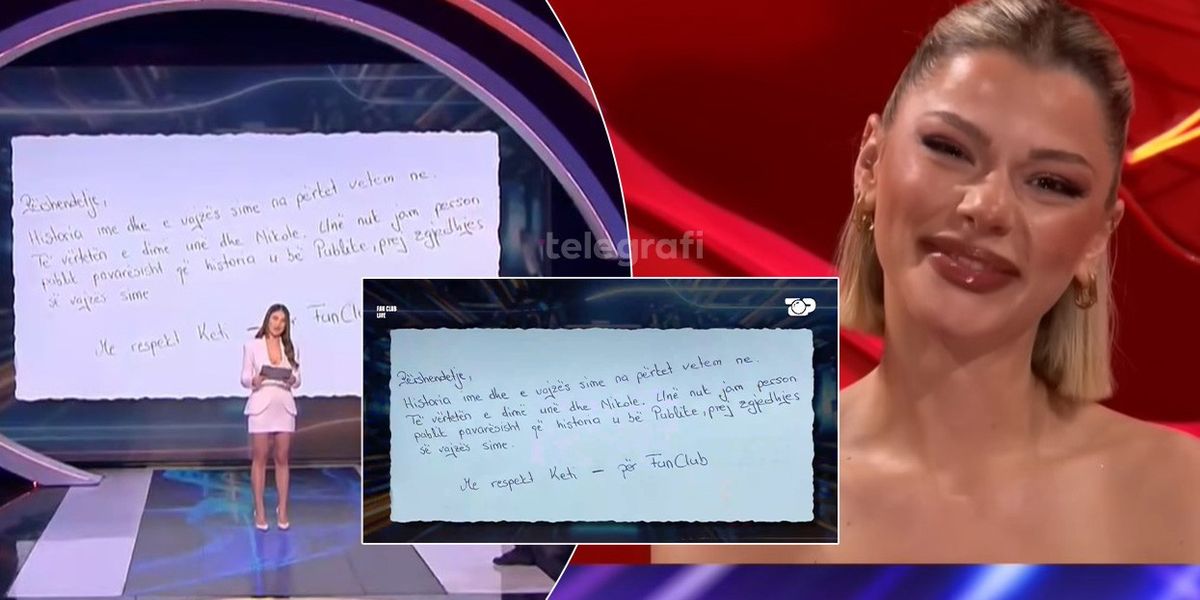 Përshendetje,
Historia ime dhe e vajzës sime na përket vetem ne.
Të vërtetën e dimë unë dhe Nikole. Unë nuk jam person
publik pavarësisht që historia u bë Publike, prej zgjedhjes
së vajzës sime
Me respekt Keti
FanClu
telegrafi
FAN CLUB
LIVE
Përshendetje,
Historia ime dhe e vajzës sime na përket vetem ne.
Të vërtetën e dimë unë dhe Nikole. Unë nuk jam person
publik pavarësisht që historia u bë Publike, prej zgjedhjes
së vajzës sime.
Me respekt Keti – për FanClub